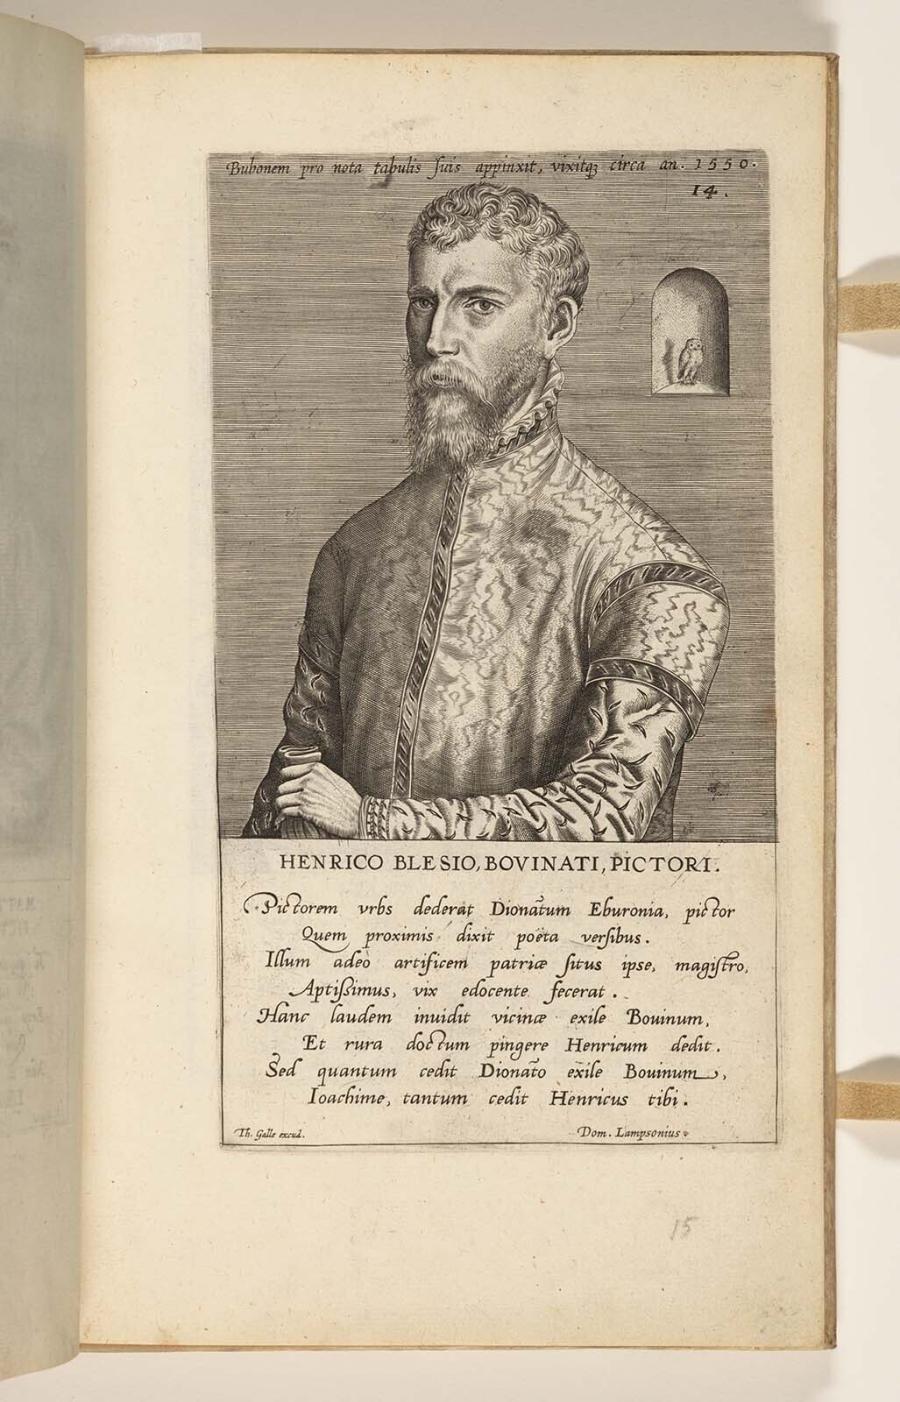 Bubonem pro nota tabulis suis appinxit, vixitq; circa an. 1550.
14.
HENRICO BLESIO, BOVINATI, PICTORI.
Pictorem vrbs dederat Dionatum Eburonia, pictor
Quem proximis dixit poëta versibus.
Illum adeò artificem patriæ situs ipse, magistro,
Aptißimus, vix edocente fecerat.
Hanc laudem inuidit vicinæ exile Bouinum,
Et rura doctum pingere Henricum dedit.
Sed quantum cedit Dionato exile Bouinum,
Ioachime, tantum cedit Henricus tibi.
Th. Galle excud.
Dom. Lampsonius
15